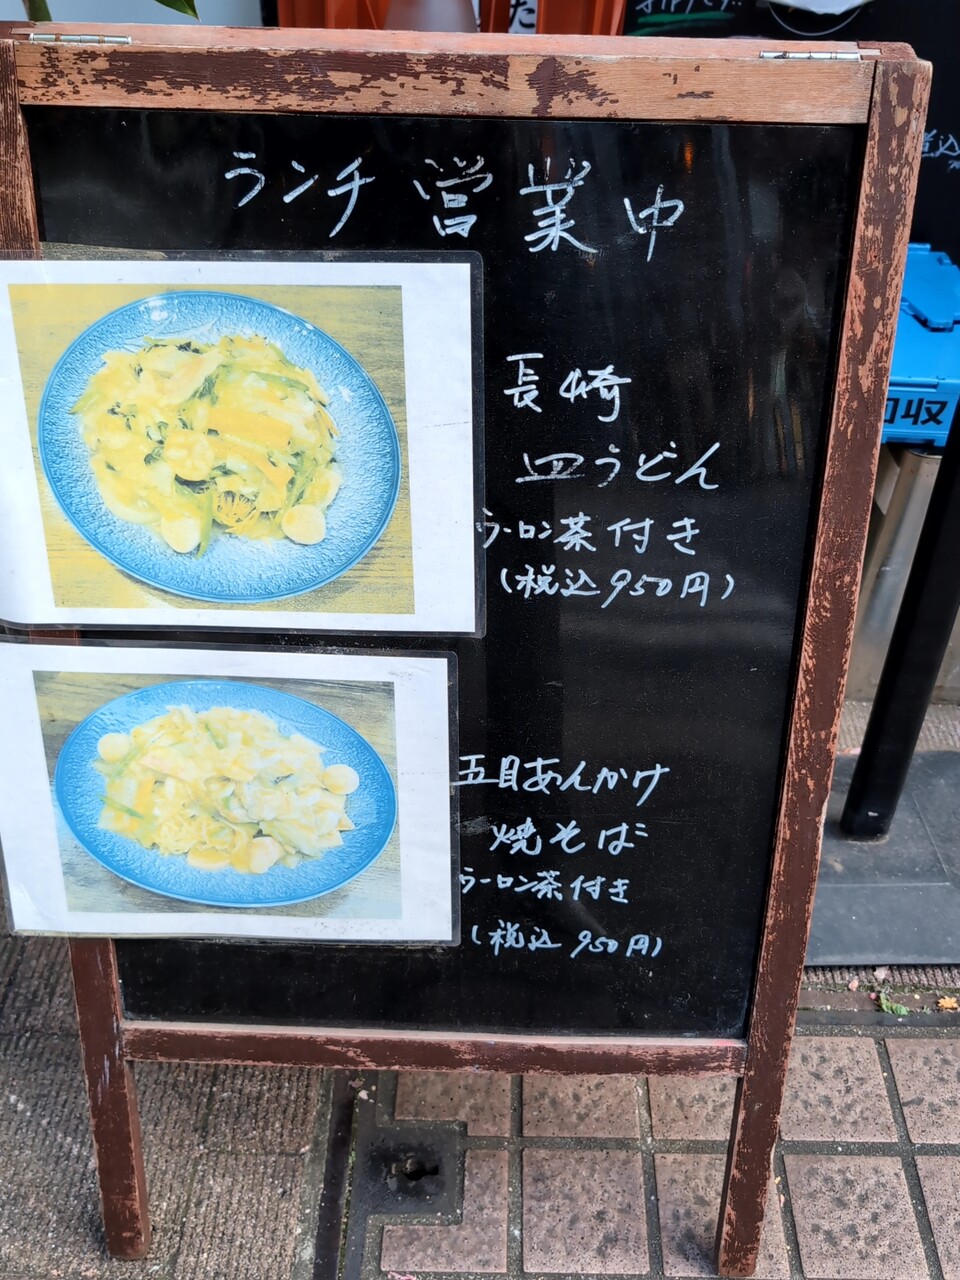 ランチ営業中
長崎
皿うどん
ウーロン茶付き
(税込950円)
五目あんかけ
焼そば
ウーロン茶付き
(税込950円)
回収
た